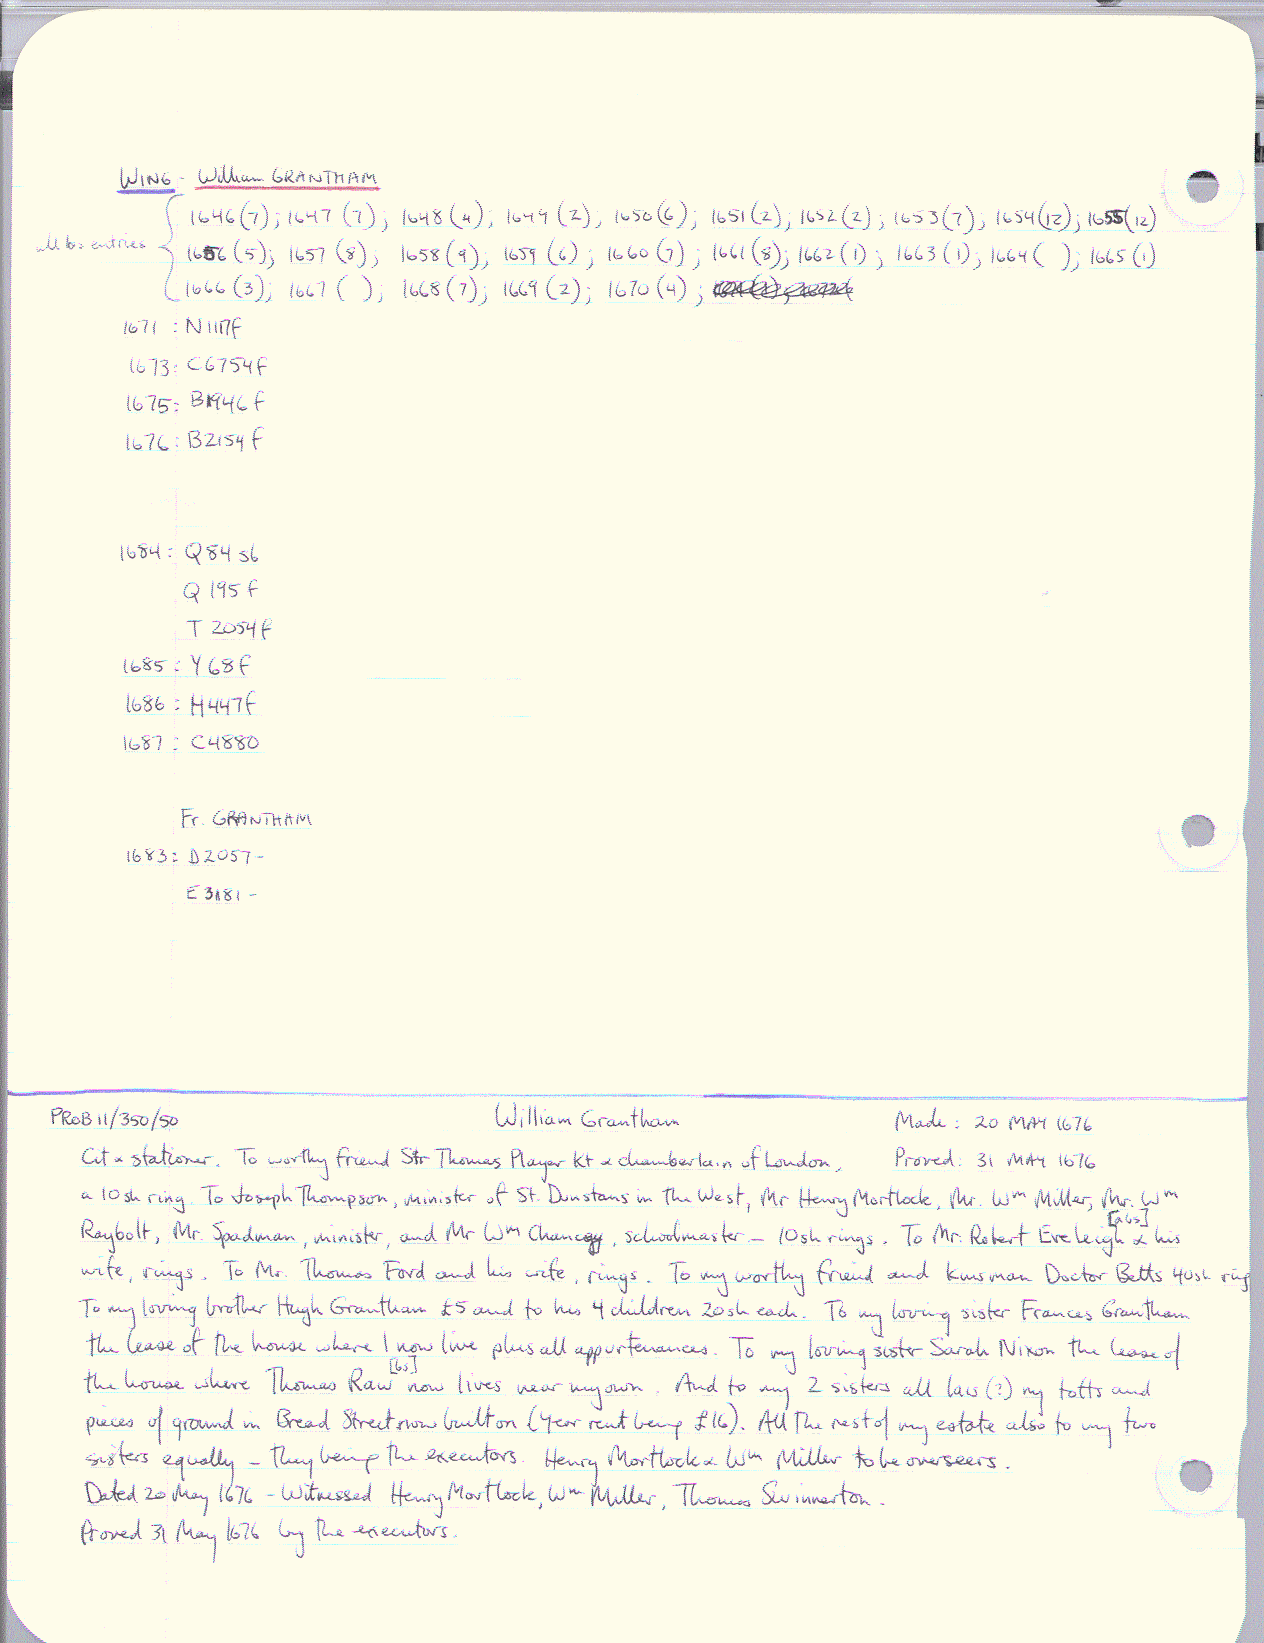 WING - William GRANTHAM
1646(7); 1647(7); 1648(4); 1649(2); 1650(6); 1651(2); 1652(2); 1653(7); 1654(12); 1655(12)
all bs entries
1656(5); 1657(8); 1658(9); 1659(6); 1660(7); 1661(8); 1662(1); 1663(1); 1664( ); 1665(1)
1666(3); 1667( ); 1668(7); 1669(2); 1670(4);
1671: N1117f
1673: C6754f
1675: B1946f
1676: B2154f
1684: Q84 s6
Q195f
T2054f
1685: Y68f
1686: H447f
1687: C4880
Fr. GRANTHAM
1683: D2057-
E3181-
PROB 11/350/50 William Grantham Made: 20 MAY 1676
Cit & stationer. To worthy friend Sir Thomas Player Kt & chamberlain of London, Proved: 31 MAY 1676
a 10sh ring. To Joseph Thompson, minister of St. Dunstans in the West, Mr Henry Mortlock, Mr. Wm Miller, Mr. Wm
[abs]
Raybolt, Mr. Spadman, minister, and Mr Wm Chancey, schoolmaster - 10sh rings. To Mr. Robert Eveleigh & his
wife, rings. To Mr. Thomas Ford and his wife, rings. To my worthy friend and kinsman Doctor Betts 40sh ring
To my loving brother Hugh Grantham £5 and to his 4 children 20sh each. To my loving sister Frances Grantham
the lease of the house where I now live plus all appurtenances. To my loving sister Sarah Nixon the lease of
[bs]
the house where Thomas Raw now lives near my own. And to my 2 sisters all law (?) my tofts and
pieces of ground in Bread Street now built on (year rent being £16). All the rest of my estate also to my two
sisters equally - they being the executors. Henry Mortlock & Wm Miller to be overseers.
Dated 20 May 1676 - Witnessed Henry Mortlock, Wm Miller, Thomas Swinnerton.
Proved 31 May 1676 by the executors.